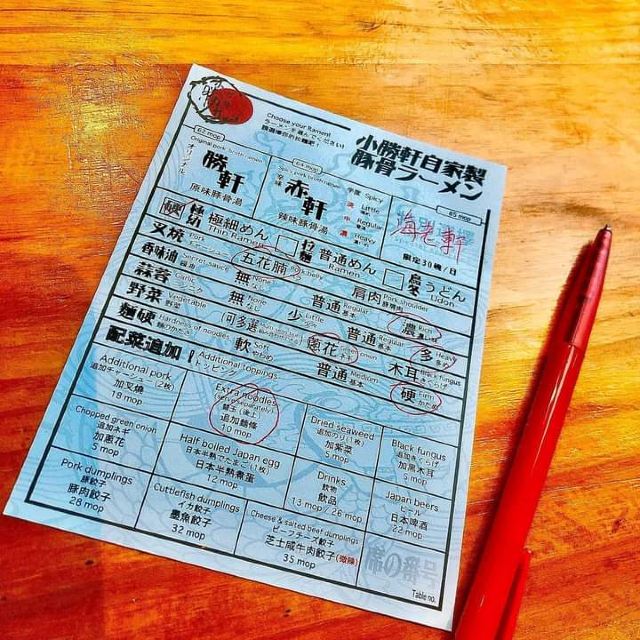 Choose your Ramen!
ラーメンを選んでください!
請選擇你的拉麵吧!
小勝軒自家製
豚骨ラーメン
62 mop
Original pork broth ramen
オリジナル
勝軒
原味豚骨湯
64 mop
Spicy pork broth ramen
辛味
赤軒
辣味豚骨湯
辛度 Spicy
Little
中 Regular
Heavy
65 mop
海老軒
限定30碗/日
硬
極細めん
Thin Ramen
拉麵
普通めん
Ramen
烏冬
うどん
Udon
叉燒
Pork
五花腩
Pork belly
肩肉
Pork shoulder
香味油
Secret sauce
無
None
普通
Regular
基本
濃
Rich
濃い味
蒜蓉
Garlic
無
None
少
Little
普通
Regular
基本
多
Heavy
多め
野菜
Vegetable
野菜
可多選
蔥花
木耳
Black fungus
きくらげ
麵硬
Hardness of noodles
麺のかたさ
軟
Soft
やわめ
普通
Medium
基本
硬
Firm
かため
配菜追加!
Additional toppings
トッピング
Additional pork
追加チャーシュー(2枚)
加叉燒
18 mop
Extra noodles
(serve separately)
替玉(後上)
追加麵條
10 mop
Dried seaweed
追加のり(1枚)
加紫菜
5 mop
Black fungus
追加きくらげ
加黑木耳
9 mop
Chopped green onion
追加ネギ
加蔥花
5 mop
Half boiled Japan egg
半熟でたまご(1枚)
日本半熟煮蛋
12 mop
Drinks
飲物
飲品
13 mop / 26 mop
Japan beers
ビール
日本啤酒
22 mop
Pork dumplings
豚餃子
豚肉餃子
28 mop
Cuttlefish dumplings
イカ餃子
墨魚餃子
32 mop
Cheese & salted beef dumplings
ビーフチーズ餃子
芝士咸牛肉餃子(微辣)
35 mop
席の番号
Table no.